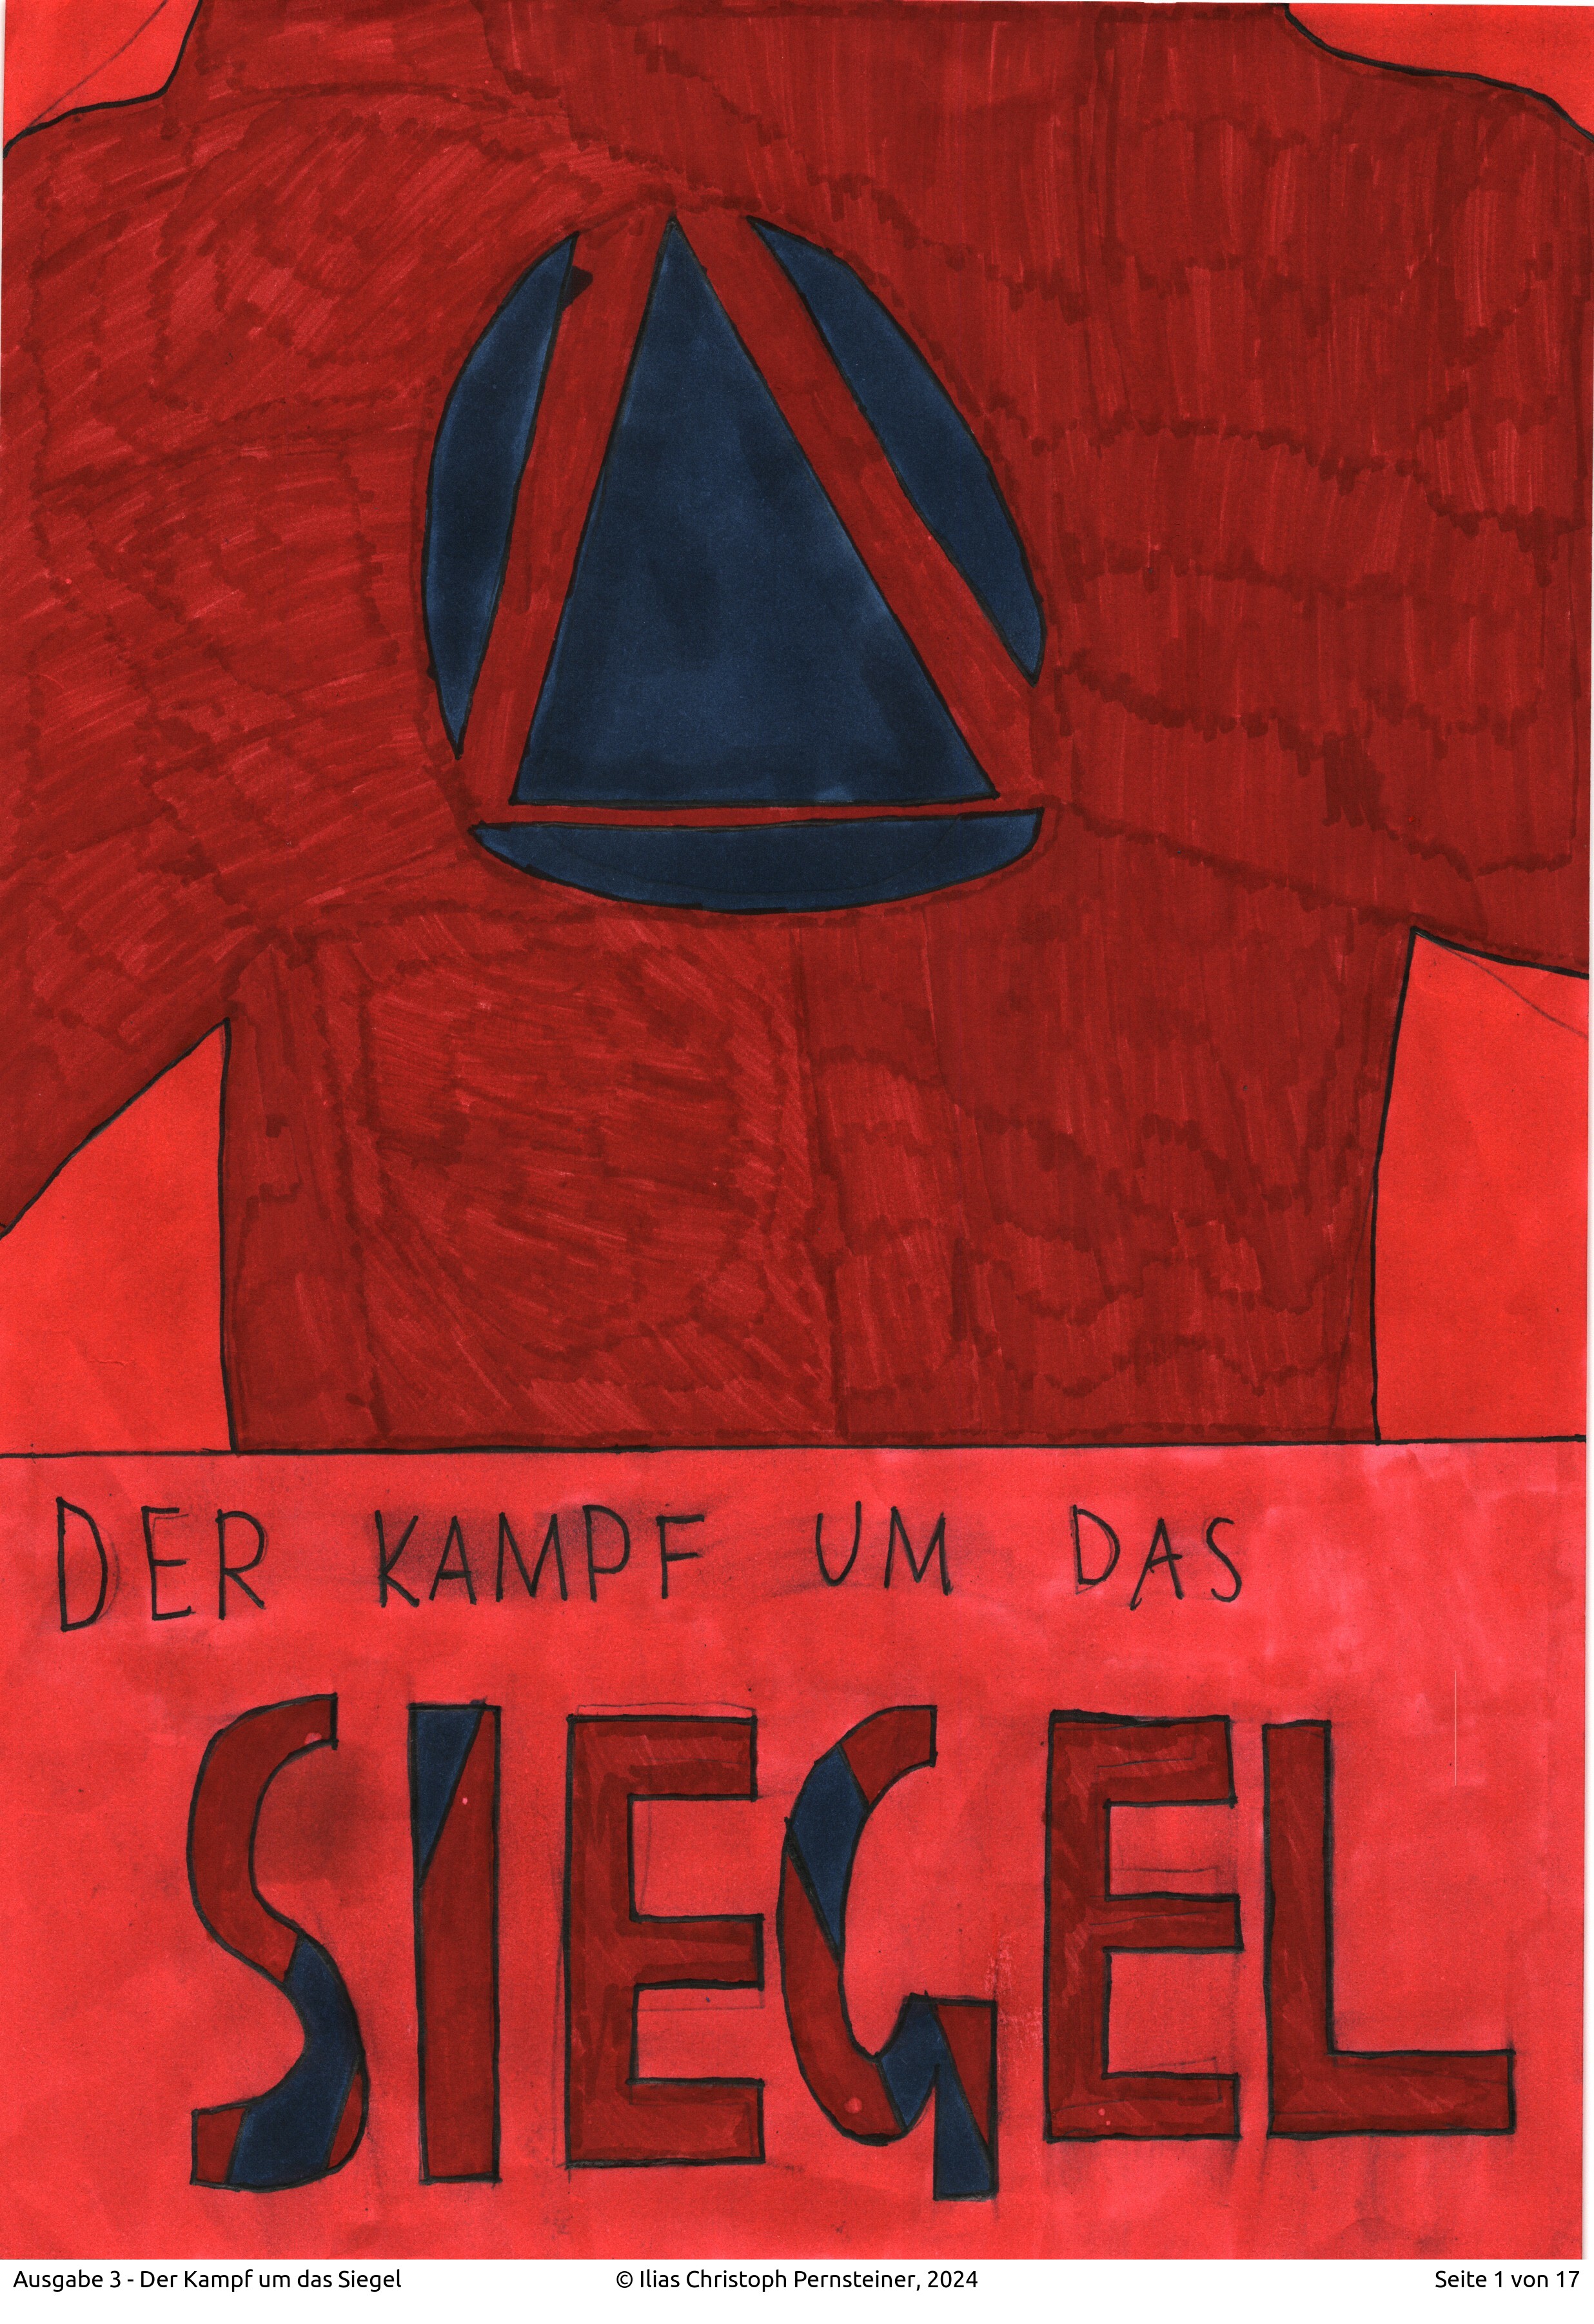 DER KAMPF UM DAS
SIEGEL
Ausgabe 3 - Der Kampf um das Siegel
© Ilias Christoph Pernsteiner, 2024
Seite 1 von 17